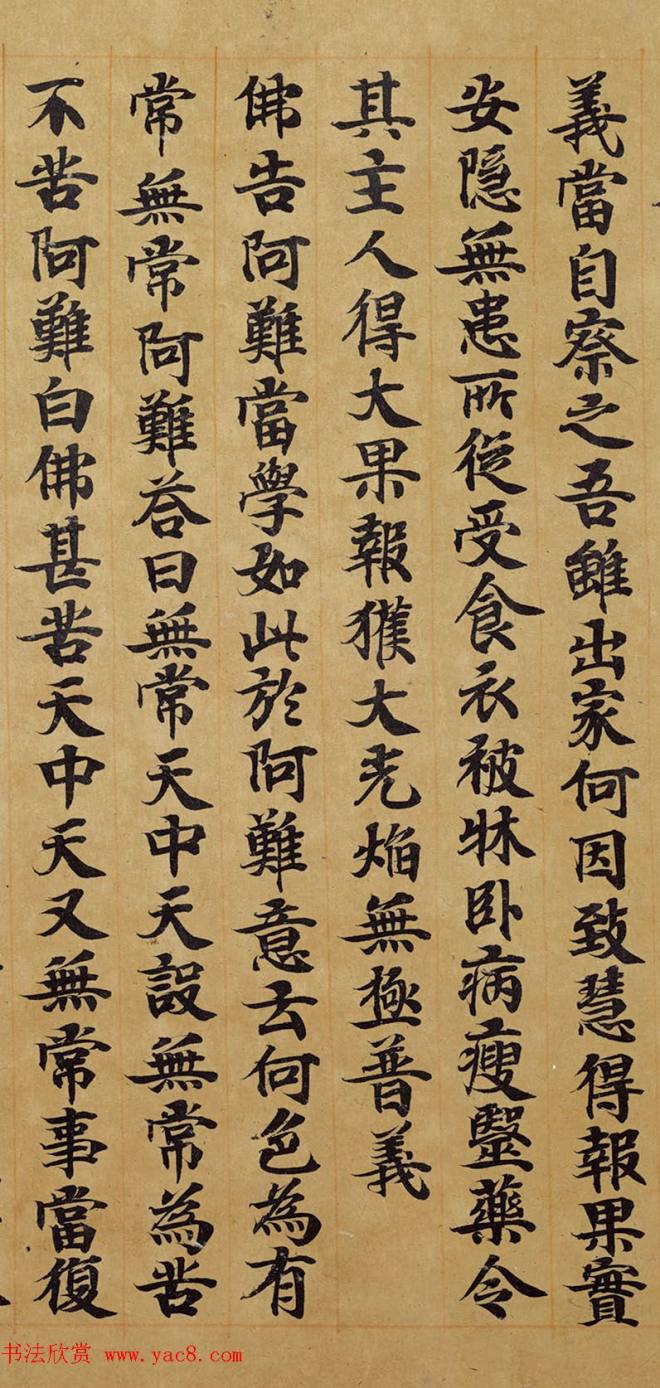 義當自察之吾雖出家何因致慧得報果實
安隱無患所從受食衣被牀卧病瘦毉藥令
其主人得大果報獲大光焰無極普義
佛告阿難當學如此於阿難意云何色為有
常無常阿難荅曰無常天中天設無常為苦
不苦阿難白佛甚苦天中天又無常事當復
书法欣赏 www.yac8.com